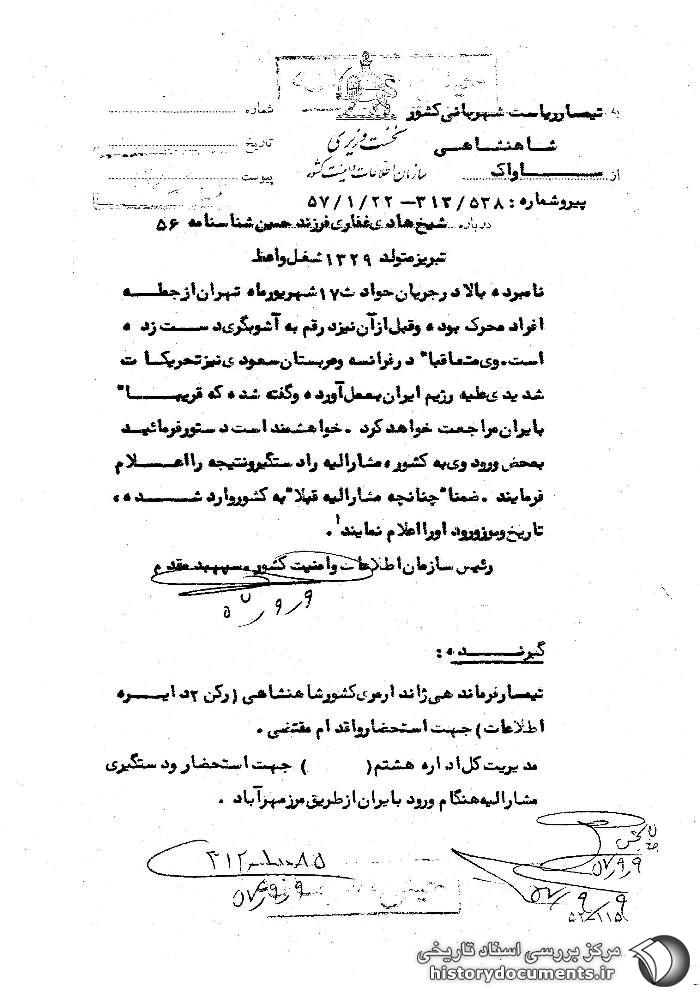 به تیمسار ریاست شهربانی کشور شماره
شاهنشاهی نخست وزیری تاریخ
از ســـاواک سازمان اطلاعات و امنیت کشور پیوست
پیرو شماره : ۳۱۲/۵۳۸ – ۵۷/۱/۲۲
درباره شیخ هادی غفاری فرزند حسین شناسنامه ۵۶
تبریز متولد ۱۳۲۹ شغل واعظ
نامبرده بالا در جریان حوادث ۱۷ شهریورماه تهران از جمله
افراد محرک بوده و قبل از آن نیز دقم به آشوبگری دست زده
است . وی متعاقبا" در فرانسه و عربستان سعودی نیز تحریکات
شدیدی علیه رژیم ایران بعمل آورده و گفته شده که قریبا"
بایران مراجعت خواهد کرد . خواهشمند است دستور فرمائید
بمحض ورود وی به کشور ، مشارالیه را دستگیر و نتیجه را اعلام
فرمایند . ضمنا" چنانچه مشارالیه قبلا" به کشور وارد شده ،
تاریخ و مرز ورود او را اعلام نمایند .
رئیس سازمان اطلاعات و امنیت کشور . سپهبد مقدم
گیرنـــده :
تیمسار فرماندهی ژاندارمری کشور شاهنشاهی ( رکن ۲ دایره
اطلاعات ) جهت استحضار و اقدام مقتضی .
مدیریت کل اداره هشتم ( ) جهت استحضار و دستگیری
مشارالیه هنگام ورود بایران از طریق مرز مهرآباد .
مرکز بررسی اسناد تاریخی
historydocuments.ir